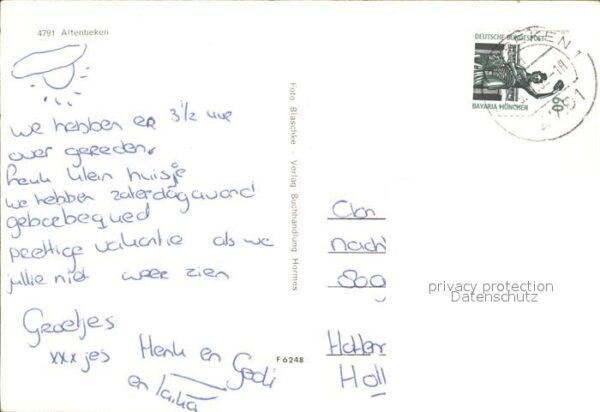 4791 Altenbeken
we hebben er 3½ uur
over gereden.
leuk klein huisje
we hebben zaterdagavond
gebarbequed
prettige vakantie als we
jullie niet weer zien
Groetjes
xxx jes Henk en
en
Foto Blaschke - Verlag Buchhandlung Hormes
F 6248
DEUTSCHE BUNDESPOST
60
BAVARIA MÜNCHEN
KEN 1
4791
nach
Holl
privacy protection
Datenschutz